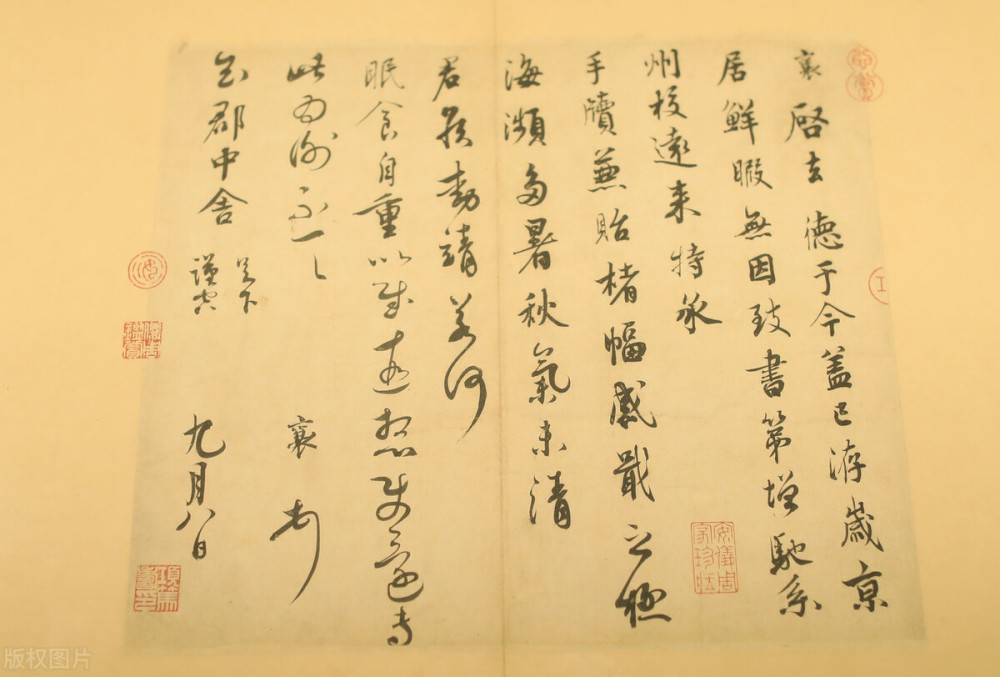 襄啓去德于今蓋已洊歲京
居鮮暇無因致書第增馳系
州校遠來特承
手牘兼貽楮幅感戢之極
海瀕多暑秋氣未清
君侯動靖若何
眠食自重以遠想
此為謝不一一
襄
郡中舍
足下
謹空
九月八日
安儀周家珍藏
版权图片